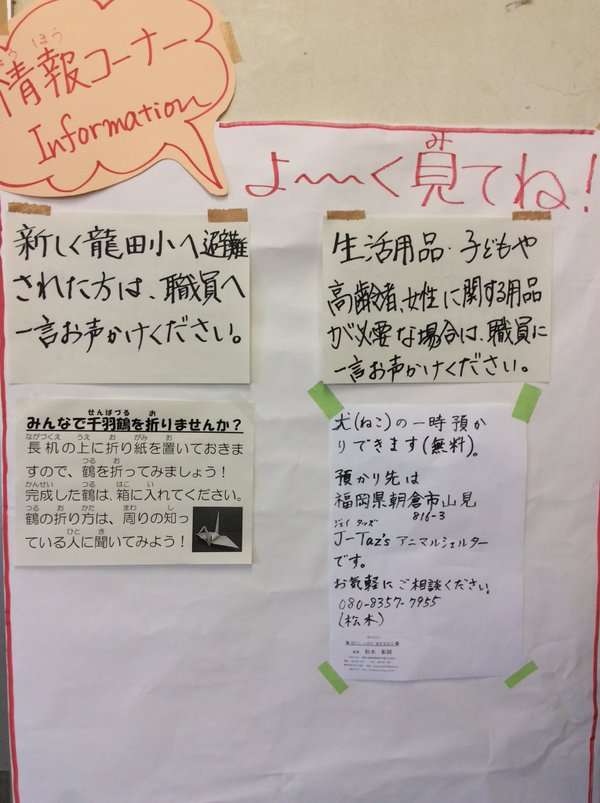 情報コーナー
Information
よ〜〜く見てね!
み
新しく龍田小へ避難
された方は、職員へ
一言お声かけください。
生活用品・子どもや
高齢者、女性に関する用品
が必要な場合は、職員に
一言お声かけください。
せんばづる お
みんなで千羽鶴を折りませんか?
ながづくえ うえ お がみ お
長机の上に折り紙を置いておきま
つる お
すので、鶴を折ってみましょう!
かんせい つる はこ い
完成した鶴は、箱に入れてください。
つる お かた まわ し
鶴の折り方は、周りの知っ
ひと き
ている人に聞いてみよう!
犬(ねこ)の一時預か
りできます(無料)。
預かり先は
福岡県朝倉市山見
816-3
ジェイ タッズ
J-Taz's アニマルシェルター
です。
お気軽にご相談ください。
080-8357-7955
(松木)